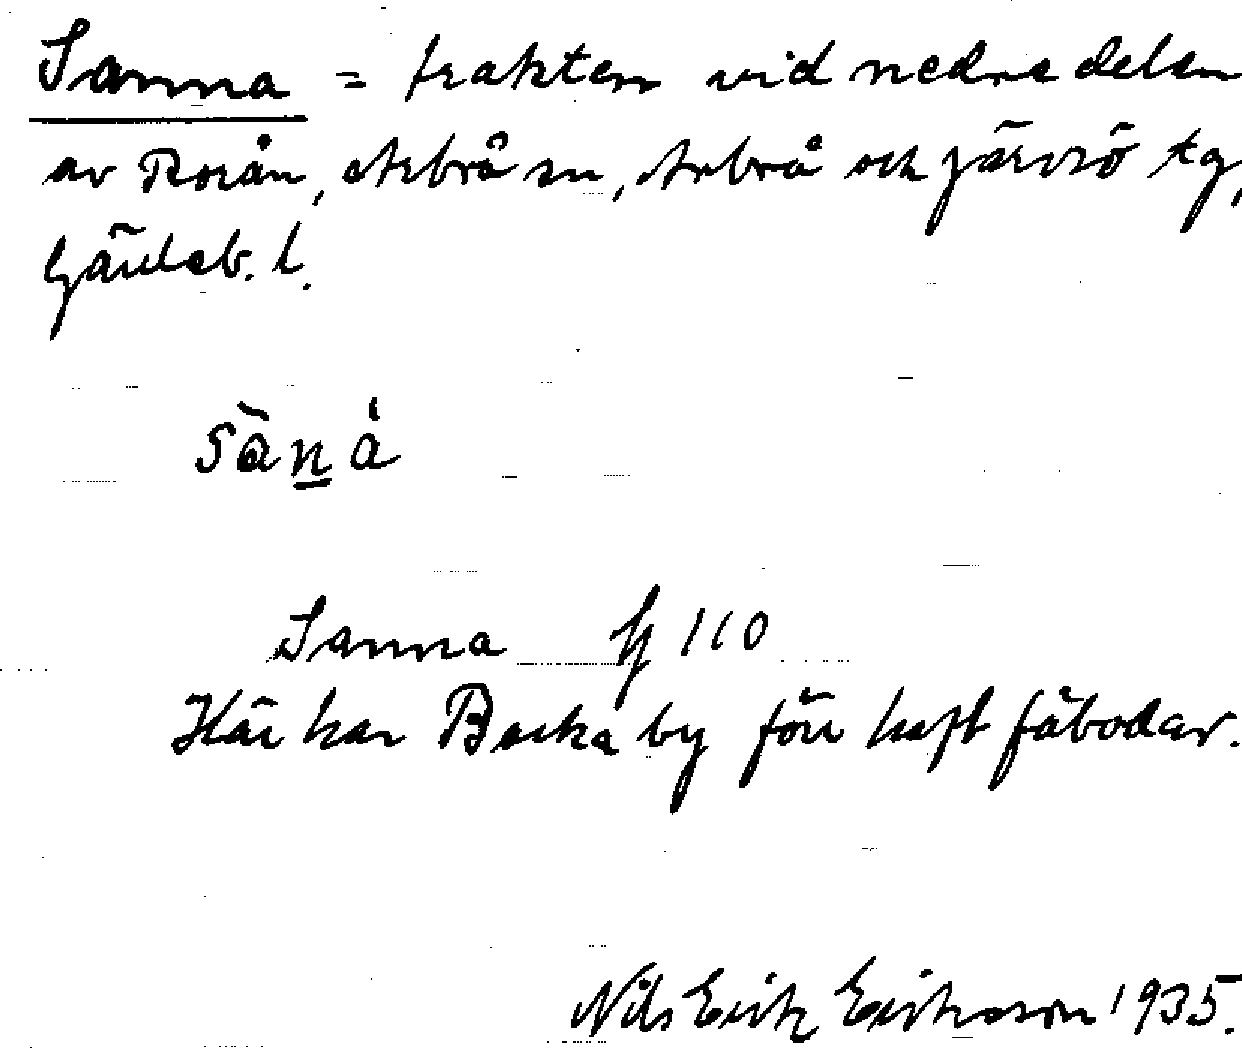 Sanna = trakten vid nedre delen
av Rosån, Arbrå sn, Arbrå och Järvsö tg,
Gävleb. l.
sàná
Sanna 110
Här har Backa by förr haft fäbodar.
Nils Erik Eriksson 1935.